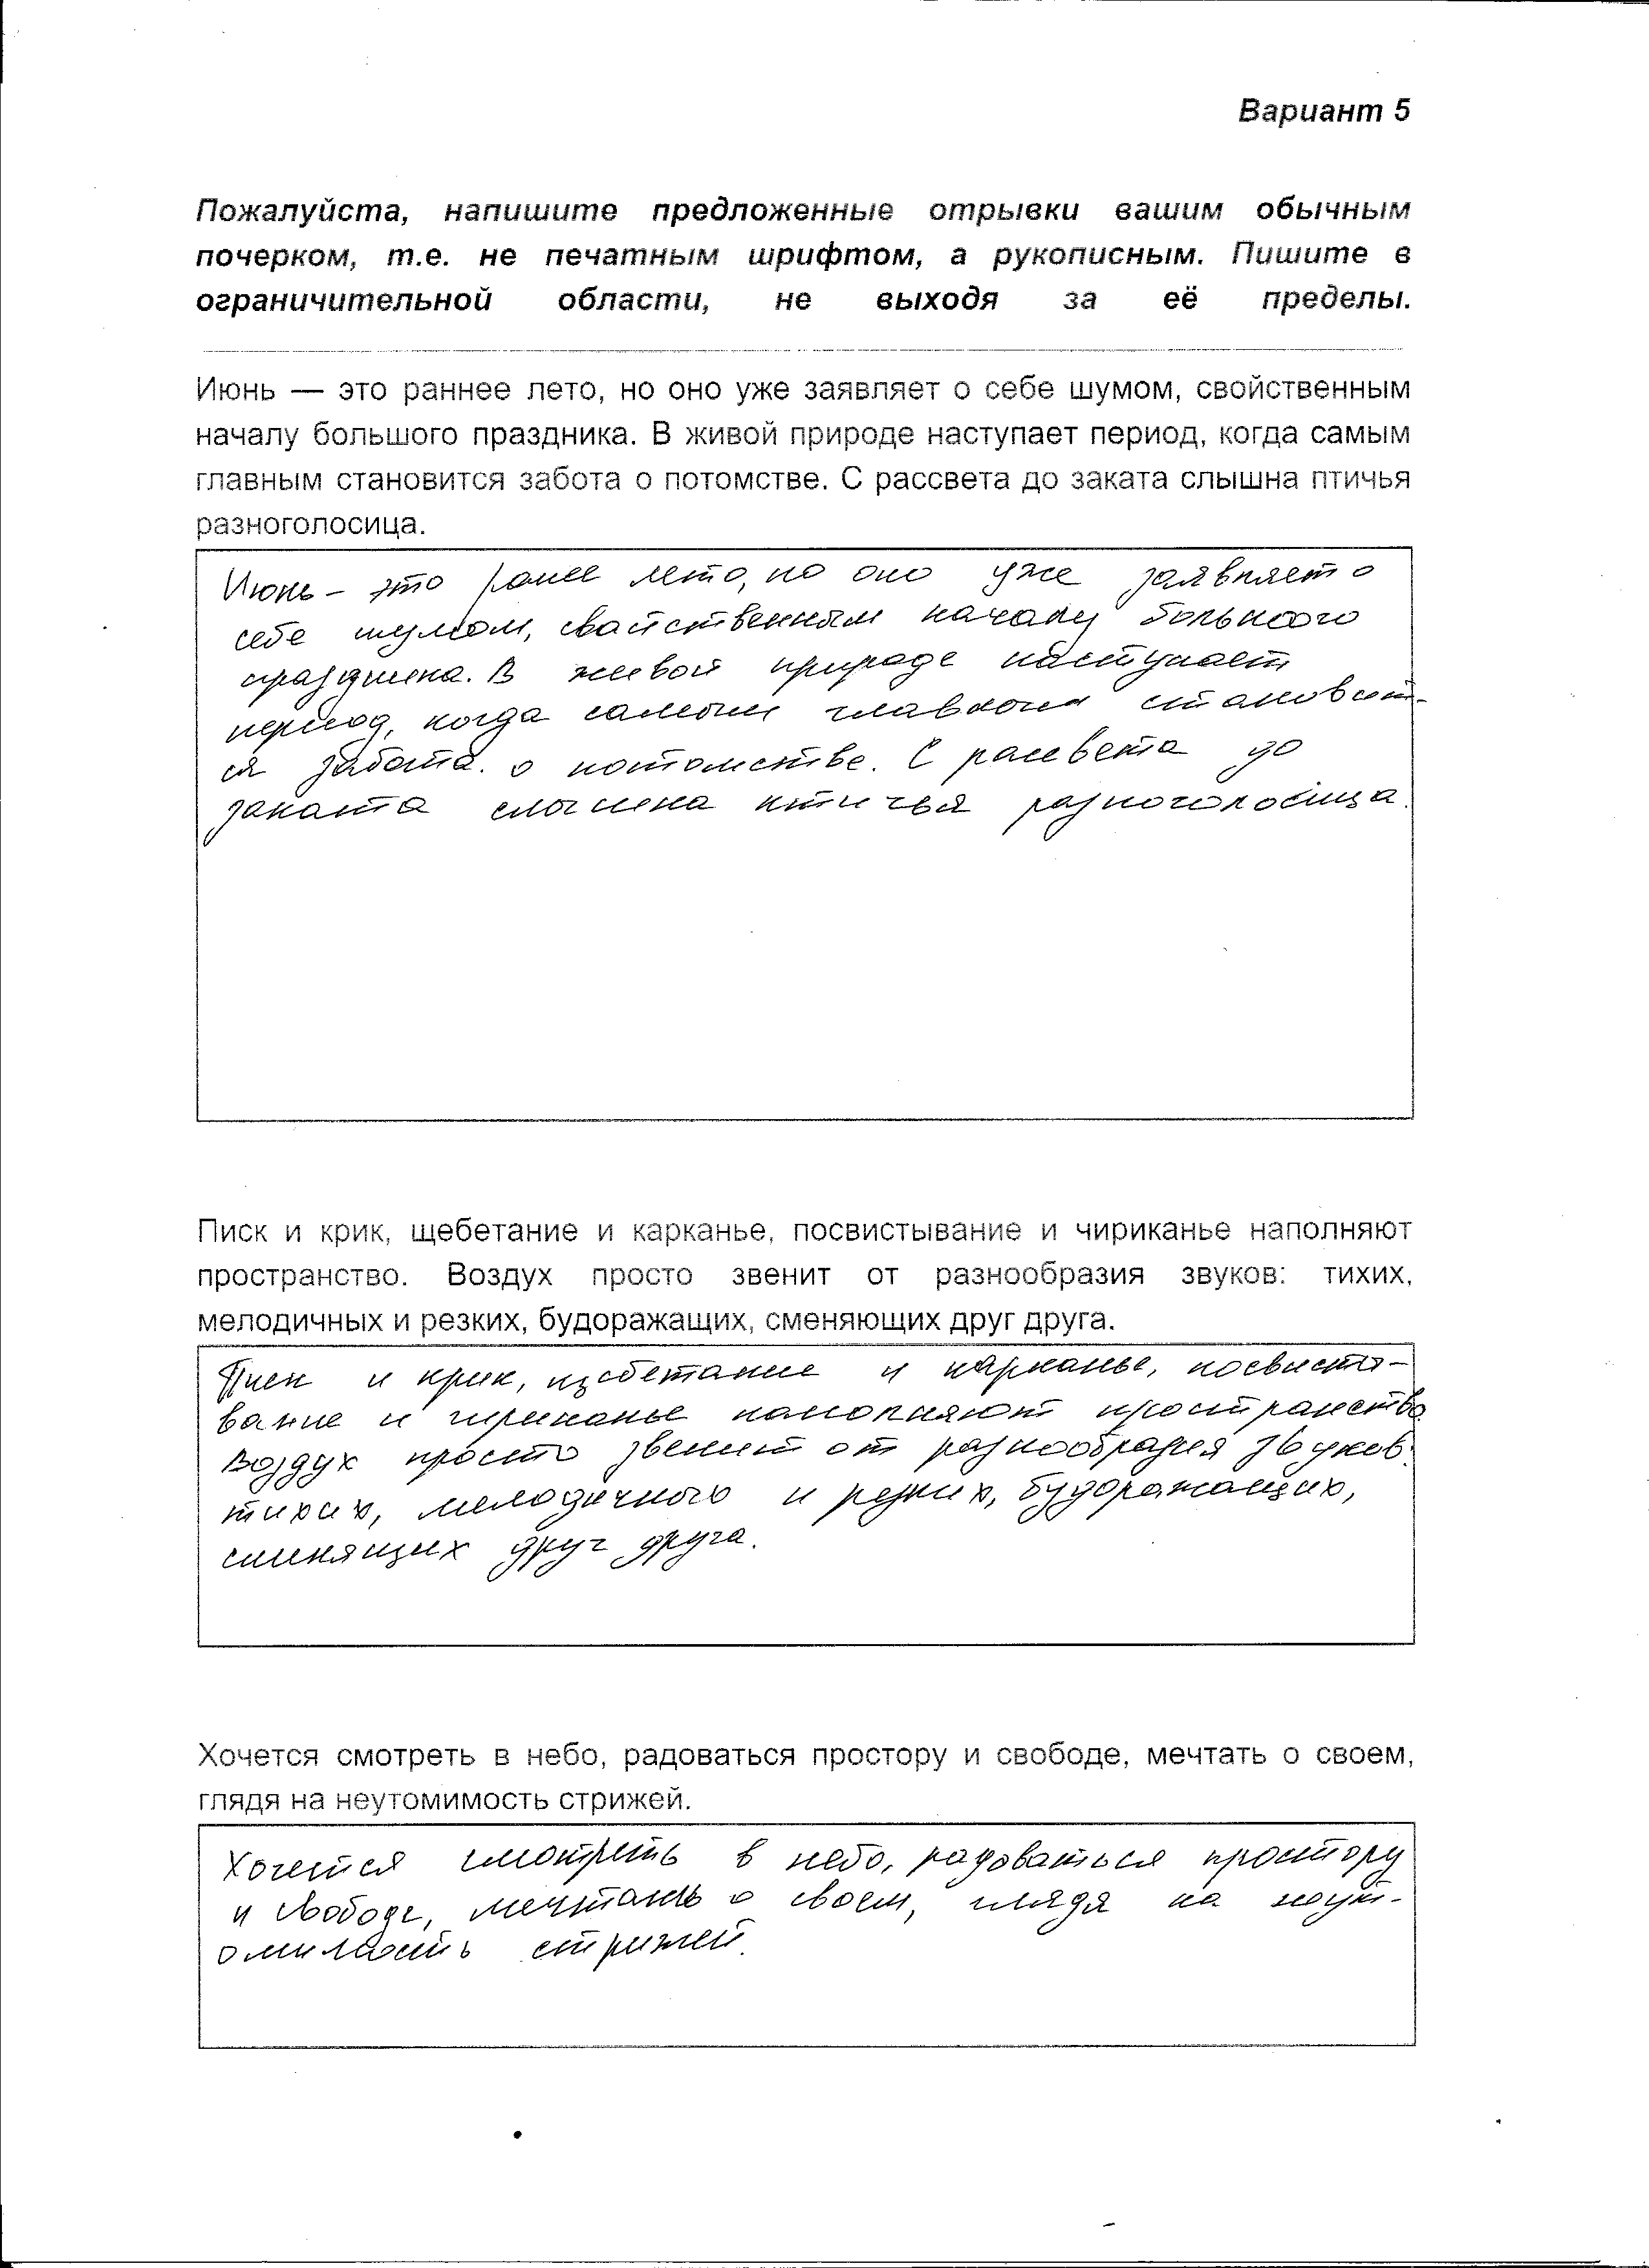 Вариант 5
Пожалуйста, напишите предложенные отрывки вашим обычным
почерком, т.е. не печатным шрифтом, а рукописным. Пишите в
ограничительной области, не выходя за её пределы.
Июнь — это раннее лето, но оно уже заявляет о себе шумом, свойственным
началу большого праздника. В живой природе наступает период, когда самым
главным становится забота о потомстве. С рассвета до заката слышна птичья
разноголосица.
Июнь - это ранее лето, но оно уже заявляет о
себе шумом, свойственным началу большого
праздника. В живой природе наступает
период, когда самым главным становит-
ся забота о потомстве. С рассвета до
заката слышна птичья разноголосица.
Писк и крик, щебетание и карканье, посвистывание и чириканье наполняют
пространство. Воздух просто звенит от разнообразия звуков: тихих,
мелодичных и резких, будоражащих, сменяющих друг друга.
Писк и крик, щебетание и карканье, посвисты-
вание и чириканье наполняют пространство
Воздух просто звенит от разнообразия звуков:
тихих, мелодичного и резких, будоражащих,
сменящих друг друга.
Хочется смотреть в небо, радоваться простору и свободе, мечтать о своем,
глядя на неутомимость стрижей.
Хочется смотреть в небо, радоваться простору
и свободе, мечтать о своем, глядя на неут-
омимость стрижей.